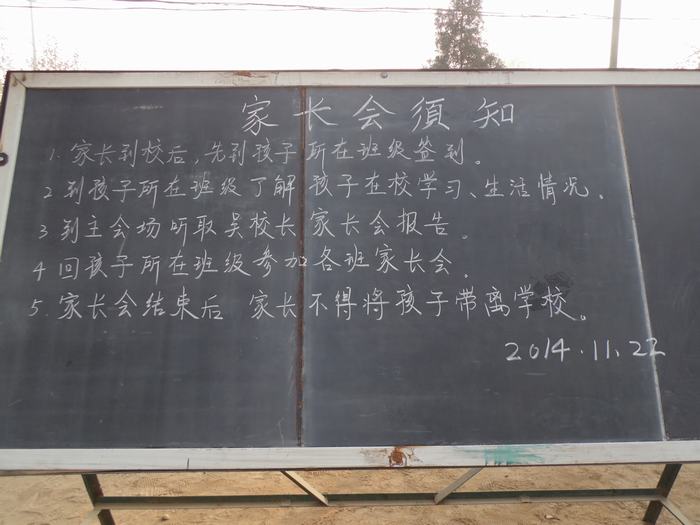 家长会須知
1. 家长到校后,先到孩子所在班级签到。
2 到孩子所在班级了解孩子在校学习、生活情况.
3 到主会场听取吴校长家长会报告。
4 回孩子所在班级参加各班家长会.
5. 家长会结束后 家长不得将孩子带离学校。
2014.11.22